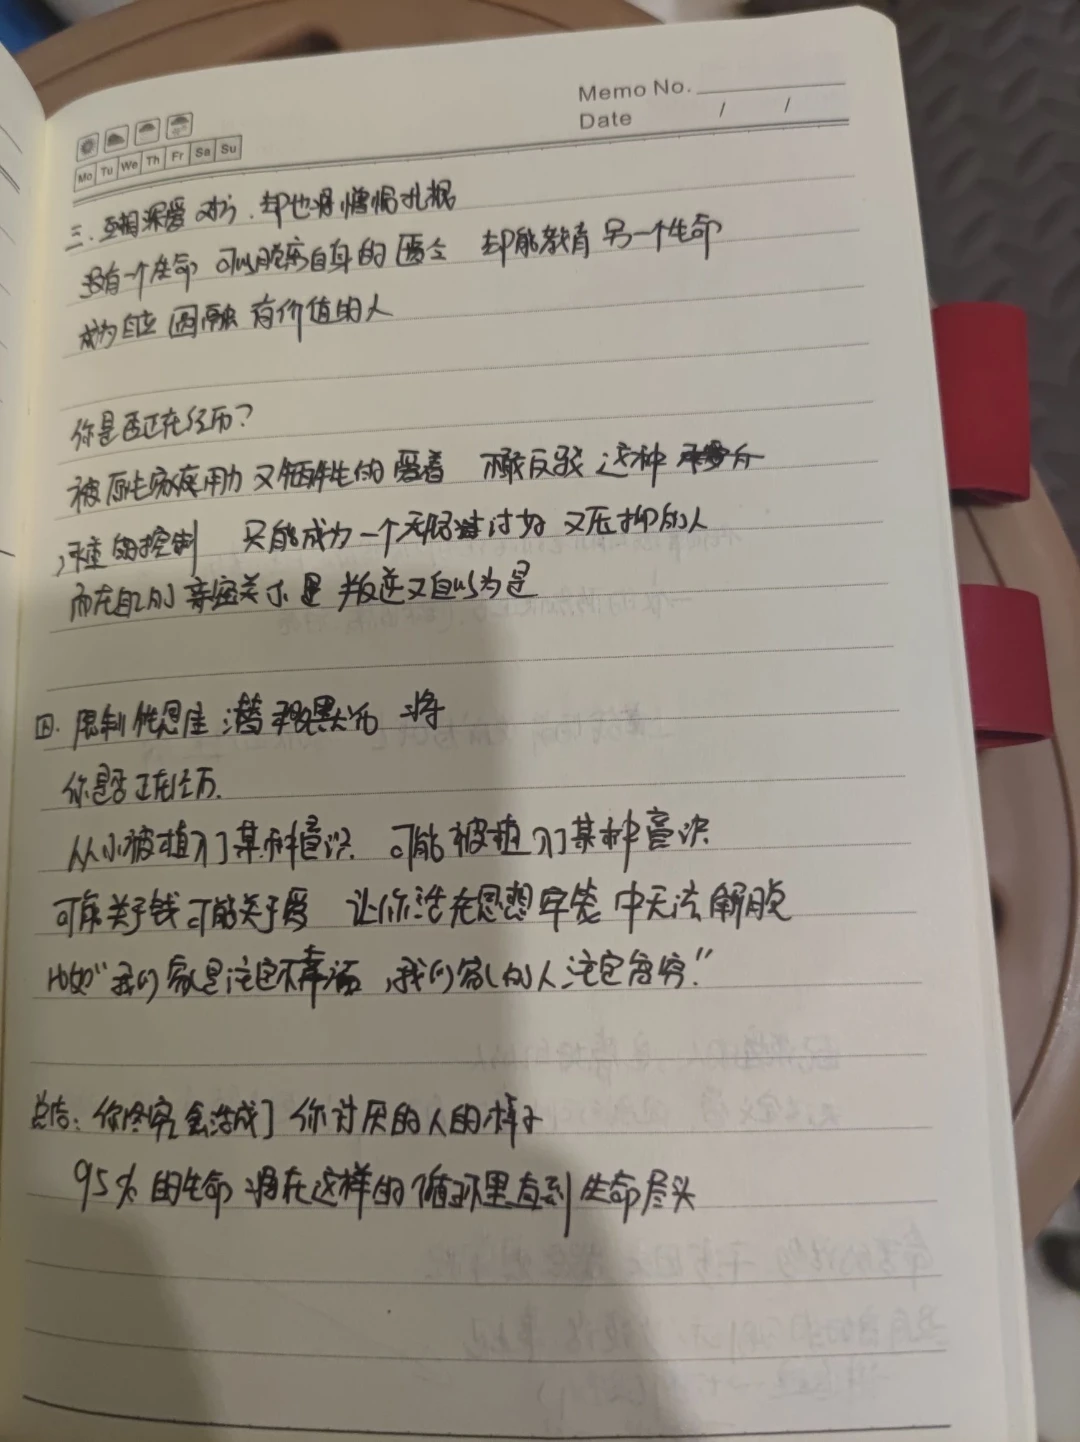 Memo No.
Date / /
Mo Tu We Th Fr Sa Su
三.互相深爱对方.却也将憎恨扎根
没有一个生命 可以脱离自身的匮乏 却能教育另一个生命
成为自立 圆融 有价值的人
你是否正在经历?
被原生家庭用力又牺牲的爱着 不敢反驳这种
沉重的控制 只能成为一个无限讨好又压抑的人
而在自己的亲密关系里 叛逆又自以为是
四.限制性思维 潜移默化
你是否正在经历.
从小被植入了某种意识 可能被植入了某种意识
可能关于钱 可能关于爱 让你活在思想牢笼中无法解脱
比如"我们家是注定不幸福,我们家的人注定贫穷."
总结:你终究会活成了你讨厌的人的样子
95%的生命 将在这样的循环里直到生命尽头